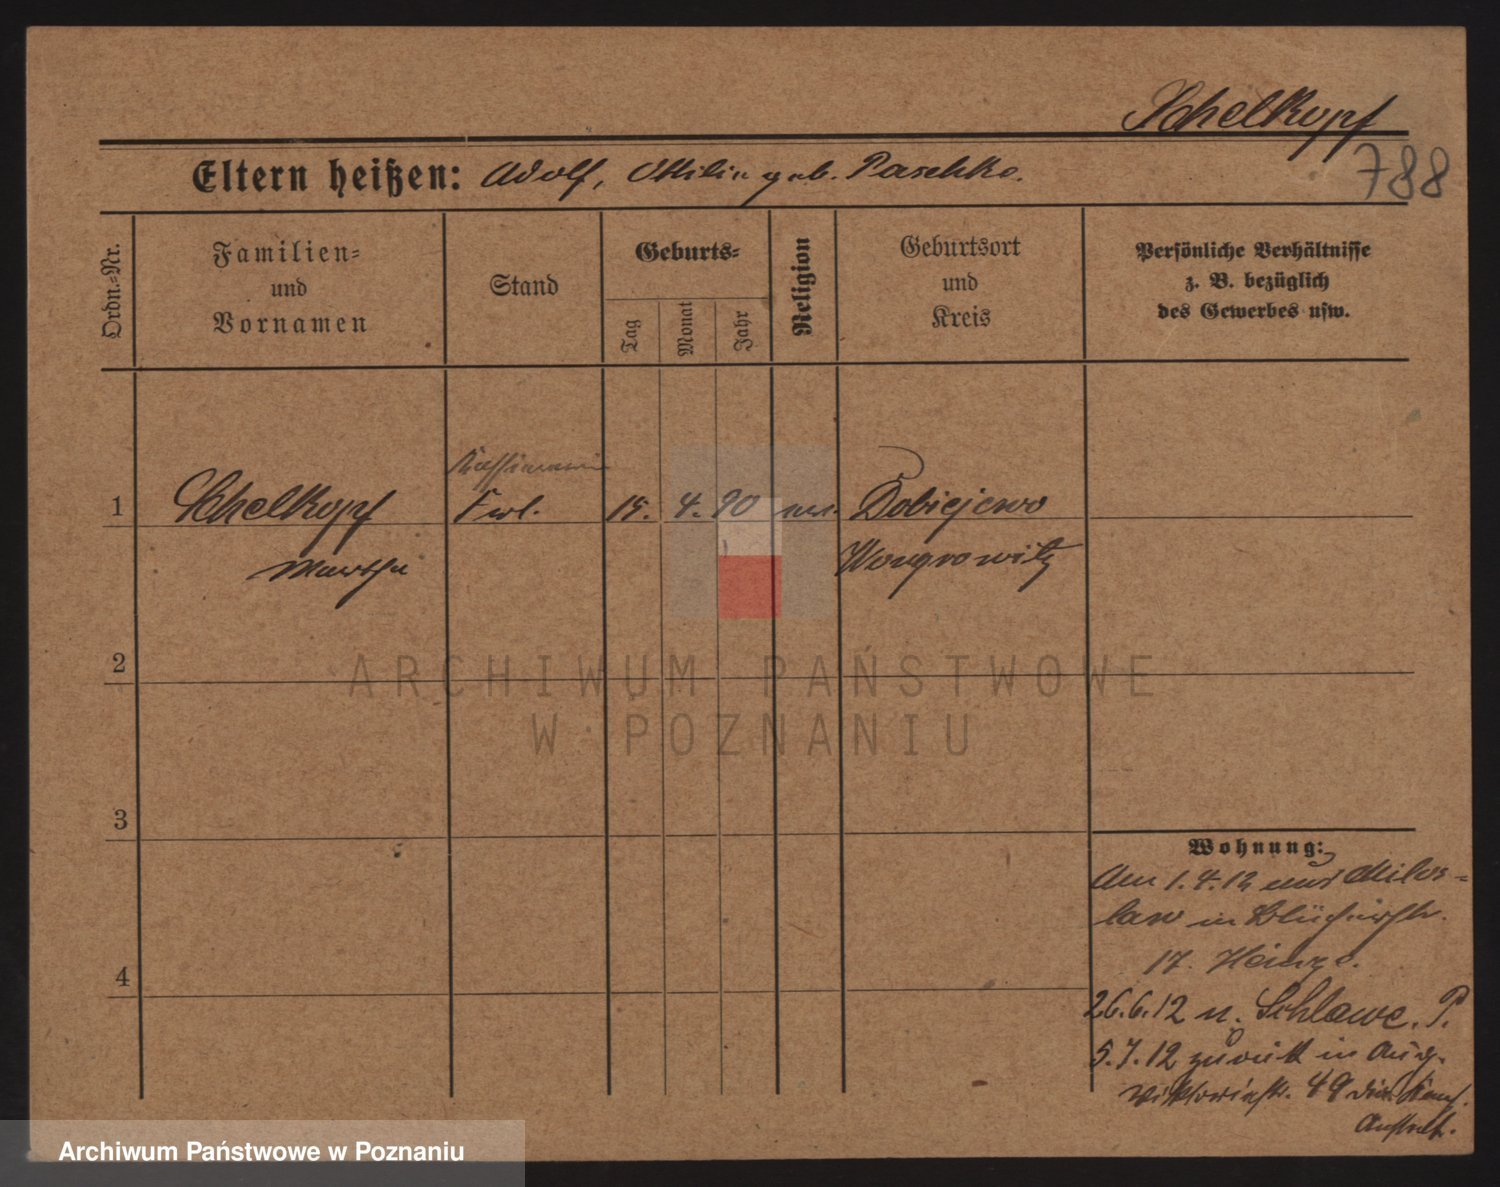 Schelkopf
788
Eltern heißen: Adolf, Ottilie geb. Paschke.
Ordn.-Nr.
Familien-
und
Vornamen
Stand
Geburts-
Tag
Monat
Jahr
Religion
Geburtsort
und
Kreis
Persönliche Verhältnisse
z. B. bezüglich
des Gewerbes usw.
Kassiererin
1 Schelkopf Frl. 15. 4. 90 ev. Dobiejewo
Martha Wongrowitz
2
3
4
Wohnung:
Am 1.4.12 aus Milos-
law in Blücherstr.
17.
26.6.12 n. Schlawe. P.
5.7.12 zurück in Aug.
Viktoriastr. 49
ARCHIWUM PAŃSTWOWE
W POZNANIU
Archiwum Państwowe w Poznaniu